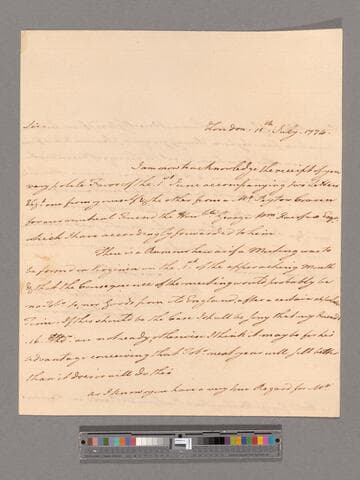 Sir
London 15th July 1774
I am now to acknowledge the receipt of your
very polite Favor of the 1st June accompanying two Letters
one from yourself & the other from a Mr
for our mutual Friend the Honble George Wm Fairfax Esqr
which I have accordingly forwarded to him
There is a Rumour here as if a Meeting was to
be formed in Virginia on the 1st of the approaching Month
& that the Consequence of the meeting would probably be
no Tobo. or Goods from or to England, after a certain
Time. If this should be the Case I shall be sorry that my Friends
are not ready, otherwise I think it may be for his
advantage conceiving that Tobo. next year will sell better
than it does or will do this
as I know you have a very sincere Regard for Mr